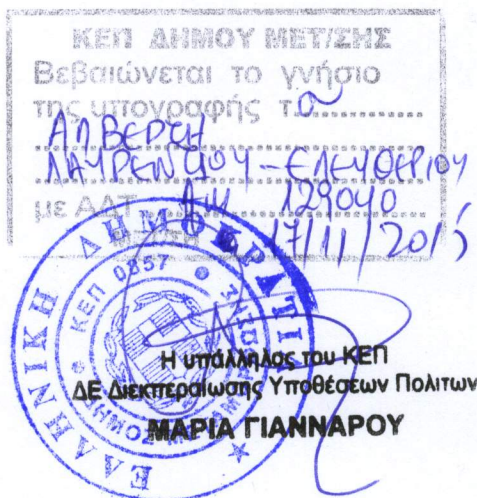 ΚΕΠ ΔΗΜΟΥ ΜΕΤ/ΣΗΣ
Βεβαιώνεται το γνήσιο
της υπογραφής τ. ου
ΑΛΒΕΡΤΗ
ΛΑΥΡΕΝΤΙΟΥ - ΕΛΕΥΘΕΡΙΟΥ
με ΑΔΤ 129040
17/11/2015
ΕΛΛΗΝΙΚΗ ΔΗΜΟΚΡΑΤΙΑ
ΚΕΠ 0857
Η υπάλληλος του ΚΕΠ
ΔΕ Διεκπεραίωσης Υποθέσεων Πολιτων
ΜΑΡΙΑ ΓΙΑΝΝΑΡΟΥ